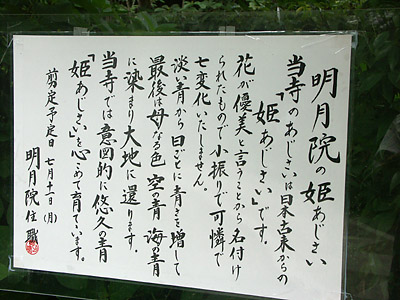 明月院の姫あじさい
当寺のあじさいは日本古来からの
「姫あじさい」です。
花が優美と言うことから名付け
られたもので小振りで可憐で
七変化いたしません。
淡い青から日ごとに青さを増して
最後は母なる色 空の青 海の青
に染まり大地に還ります。
当寺では意図的に悠久の青
「姫あじさい」を心こめて育ています。
剪定予定日 七月十一日(月)
明月院住職